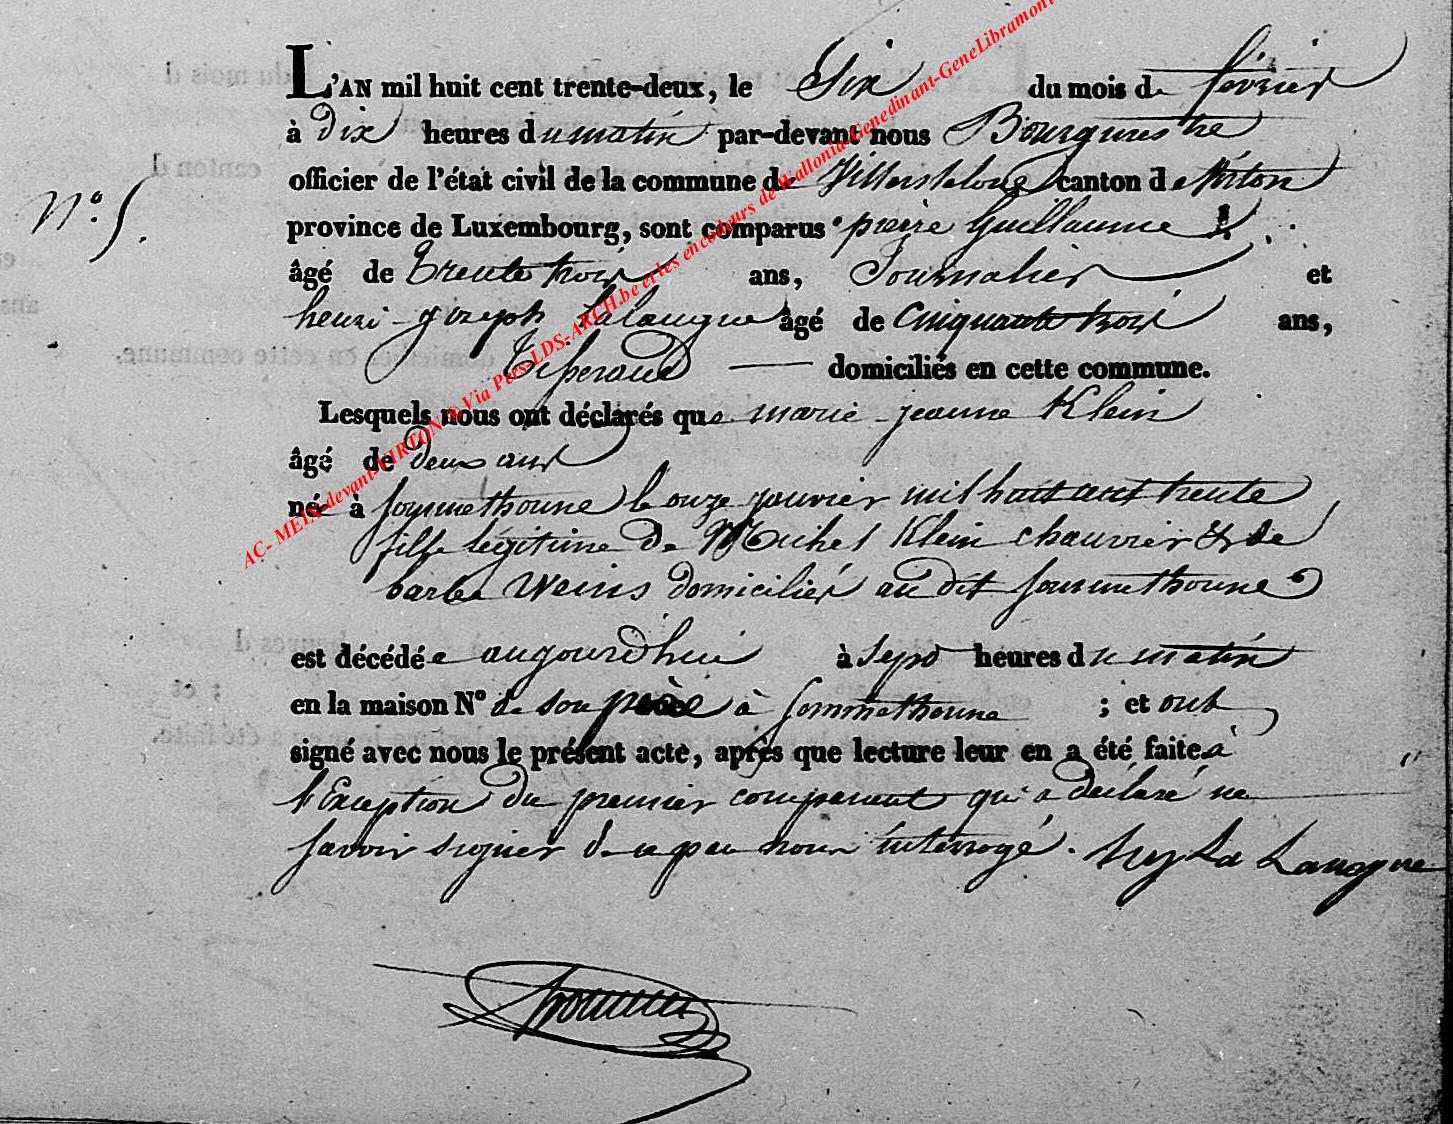 L'AN mil huit cent trente-deux, le Six du mois de février
à dix heures du matin par-devant nous Bourgmestre
officier de l'état civil de la commune de Villers la loue canton de Virton
N° 5.
province de Luxembourg, sont comparus pierre Guillaume
âgé de Trente trois ans, Journalier et
henri-joseph Lalangue âgé de Cinquante trois ans,
Tisserand domiciliés en cette commune.
Lesquels nous ont déclarés que marie-jeanne Klein
âgé de deux ans
née à Sommethonne le onze janvier mil huit cent trente
fille légitime de Michel Klein chauvrier & de
barbe Weins domiciliés au dit Sommethonne
est décédée aujourdhui à sept heures du matin
en la maison N° de son père à Sommethonne ; et ont
signé avec nous le présent acte, après que lecture leur en a été faite à
l'Exception du premier comparant qui a déclaré ne
savoir signer de ce par nous interrogé. hry La Langue
AC- MEIX-devant-VIRTON ® Via Pers-LDS-ARCH.be et les encodeurs de Wallonia-Genedinant-GeneLibramont